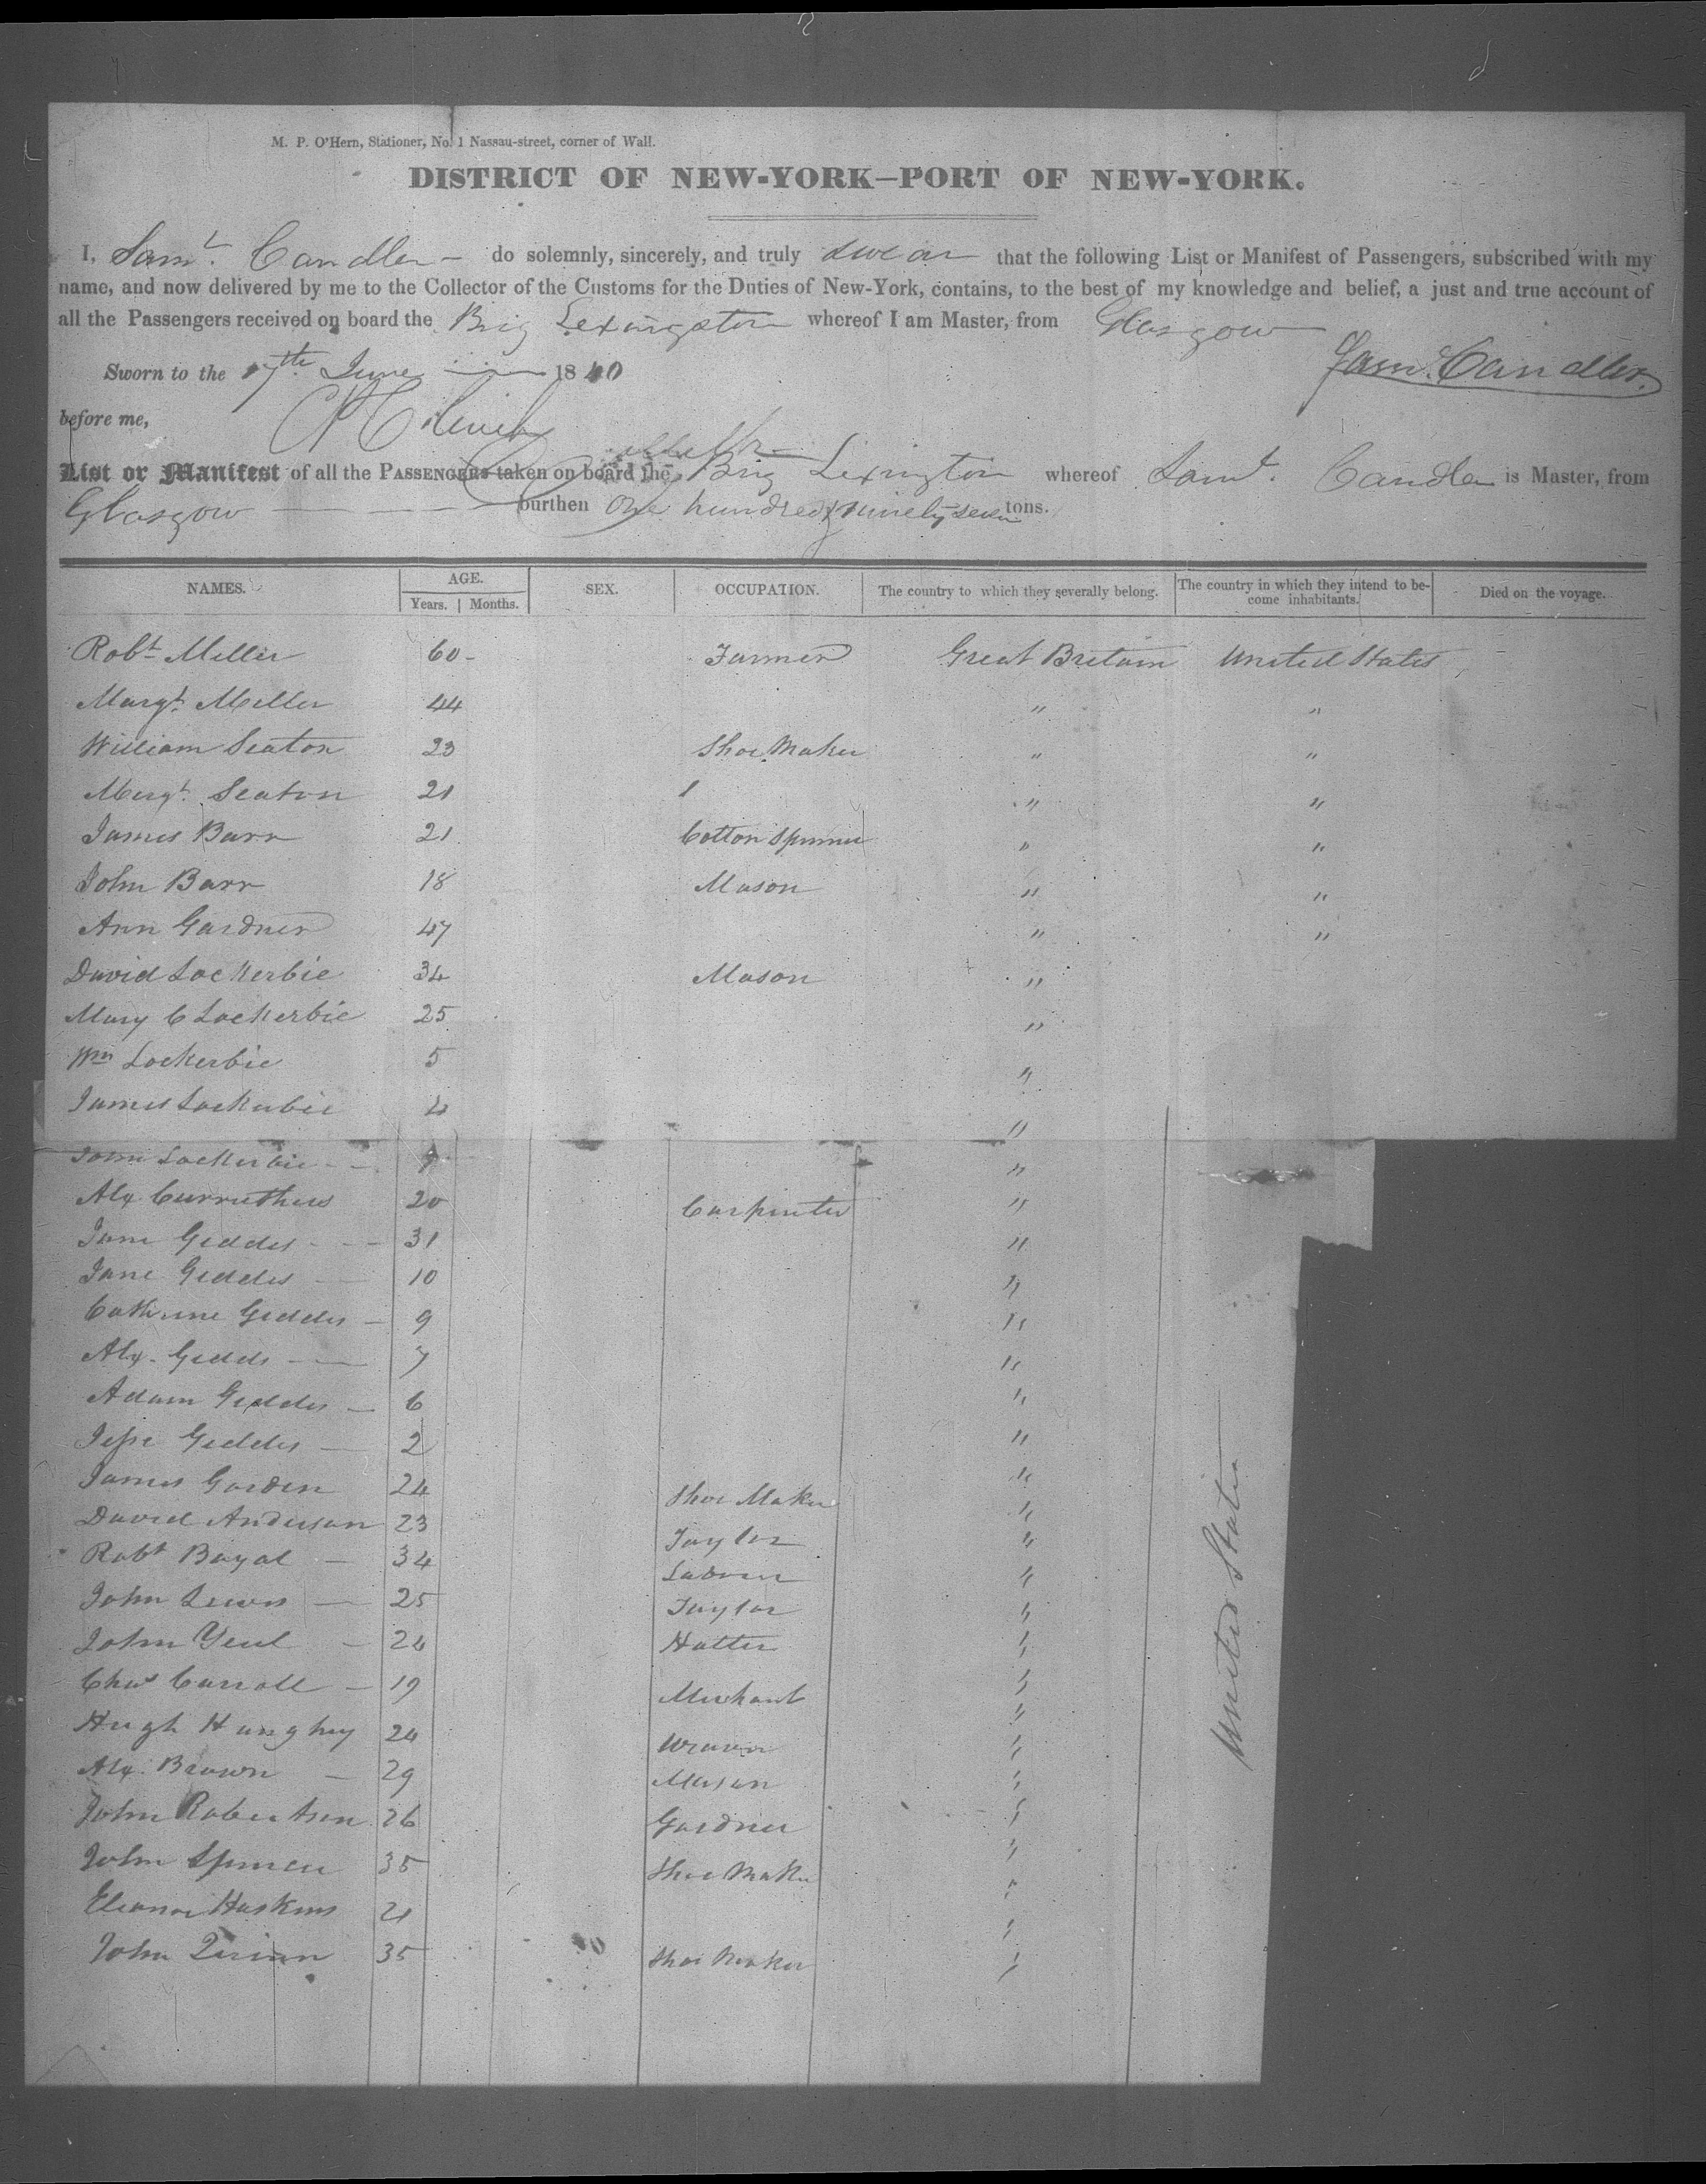 M. P. O'Hern, Stationer, No. 1 Nassau-street, corner of Wall.
DISTRICT OF NEW-YORK—PORT OF NEW-YORK.
I, Samt. Candler - do solemnly, sincerely, and truly swear that the following List or Manifest of Passengers, subscribed with my
name, and now delivered by me to the Collector of the Customs for the Duties of New-York, contains, to the best of my knowledge and belief, a just and true account of
all the Passengers received on board the Brig Lexington whereof I am Master, from Glasgow
Sworn to the 17th June 1840 Saml. Candler
before me,
List or Manifest of all the PASSENGERS taken on board the Brig Lexington whereof Samt. Candler is Master, from
Glasgow burthen One hundred & ninety seven tons.
NAMES. AGE. Years. Months. SEX. OCCUPATION. The country to which they severally belong. The country in which they intend to become inhabitants. Died on the voyage.
Robt Miller 60 - Farmer Great Britain United States
Margt. Miller 44 " "
William Seaton 23 Shoe Maker " "
Margt. Seaton 21 " "
James Barr 21 Cotton Spinner " "
John Barr 18 Mason " "
Ann Gardner 47 " "
David Lockerbie 34 Mason "
Mary C Lockerbie 25 "
Wm Lockerbie 5 "
James Lockerbie 4 "
John Lockerbie "
Alx Carruthers 20 Carpenter "
Jane Geddes 31 "
Jane Geddes 10 "
Cathrine Geddes 9 "
Alx. Gedds 7 "
Adam Geddes 6 "
Jesse Geddes 2 "
James Gorden 24 Shoe Maker "
David Anderson 23 Taylor "
Robt 34 Labourer "
John Lewis 25 Taylor "
John Yeul 24 Hatter "
Chas Carroll 19 Merchant "
Hugh Hunghey 24 Weaver "
Alx. Brown 29 Mason "
John Robertson 26 Gardner "
John Spencer 35 Shoe Maker "
Eleanor Haskins 21 "
John Quinn 35 Shoe Maker "
United States